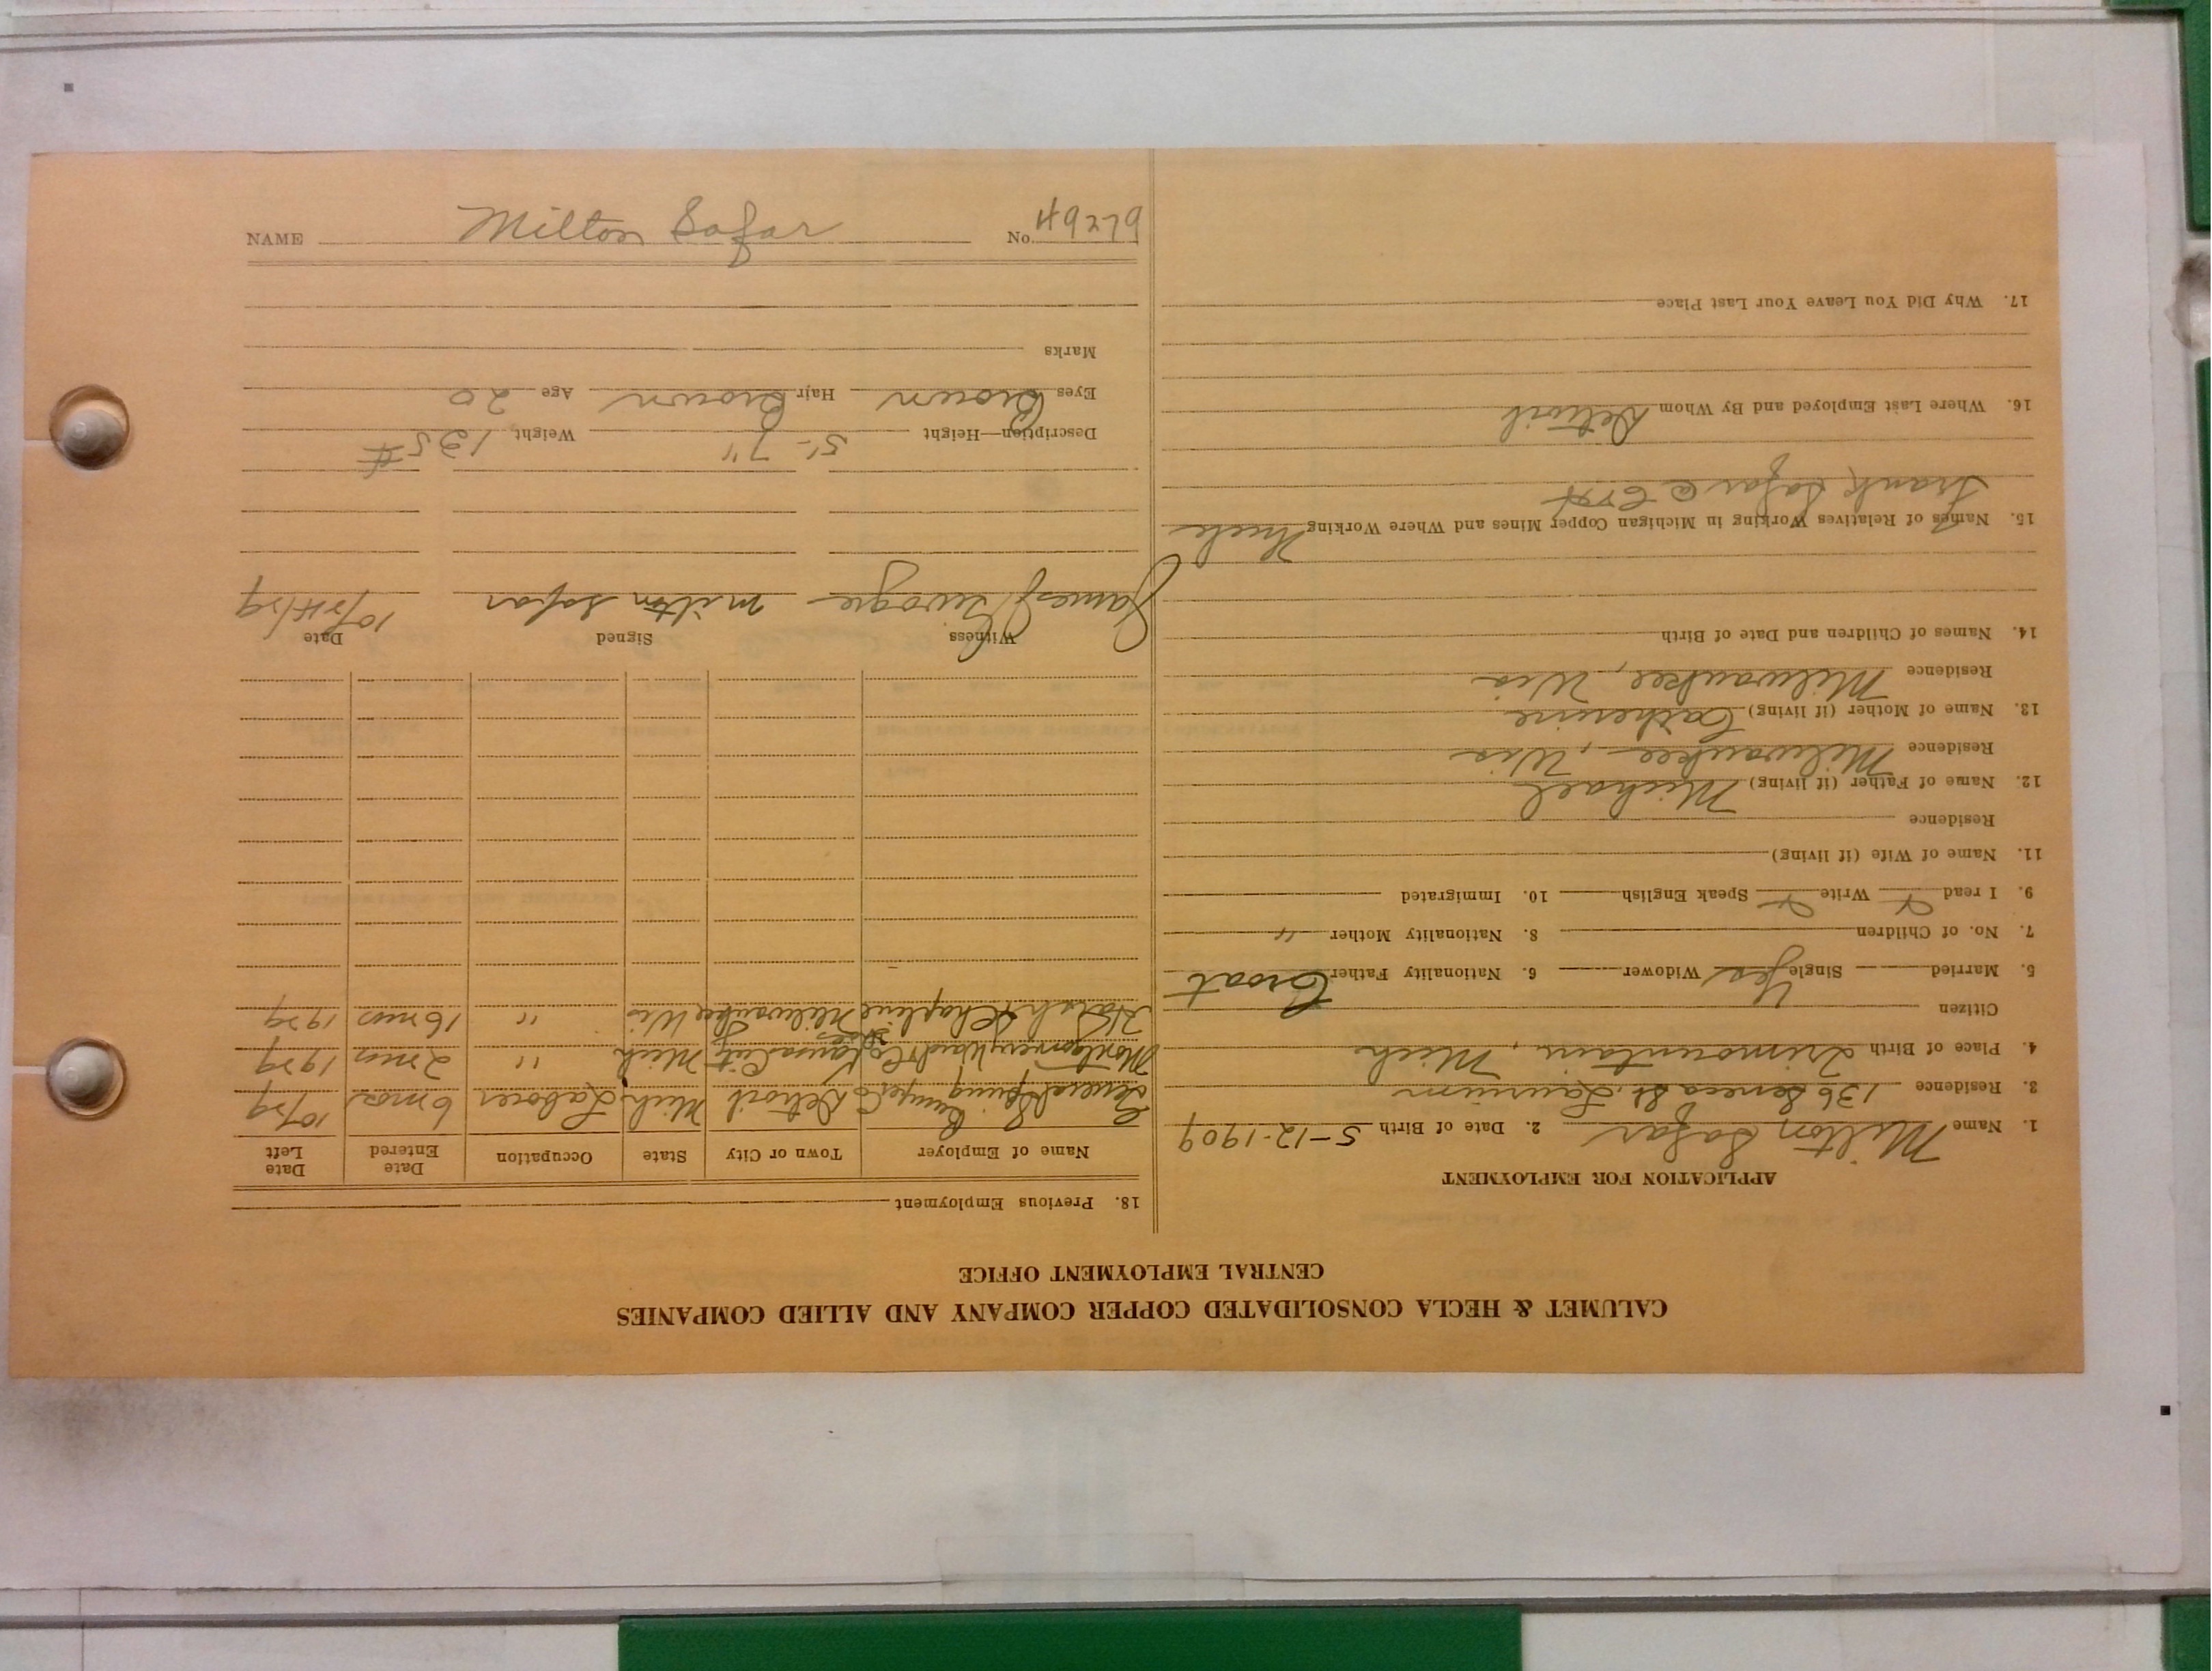 CALUMET & HECLA CONSOLIDATED COPPER COMPANY AND ALLIED COMPANIES
CENTRAL EMPLOYMENT OFFICE
APPLICATION FOR EMPLOYMENT
1. Name Milton Safar 2. Date of Birth 5-12-1909
3. Residence 136 Seneca St. Laurium
4. Place of Birth Trimountain, Mich
Citizen
5. Married Single Yes Widower 6. Nationality Father Croat
7. No. of Children 8. Nationality Mother "
9. I read Write Speak English 10. Immigrated
11. Name of Wife (if living)
Residence
12. Name of Father (if living) Michael
Residence Milwaukee, Wis
13. Name of Mother (if living) Catherine
Residence Milwaukee, Wis
14. Names of Children and Date of Birth
15. Names of Relatives Working in Michigan Copper Mines and Where Working Uncle
Frank Safar @ C&H
16. Where Last Employed and By Whom Detroit
17. Why Did You Leave Your Last Place
18. Previous Employment
Name of Employer Town or City State Occupation Date Entered Date Left
General Spring Bumper Co Detroit Mich Laborer 6 mos 10/29
Montgomery Ward & Co Kansas City Mich " 2 mos 1929
& Chapline Milwaukee Wis " 16 mos 1929
Witness Signed Date
James milton safar 10/24/29
Description—Height 5'-7" Weight 135#
Eyes Brown Hair Brown Age 20
Marks
NAME Milton Safar No. 49279